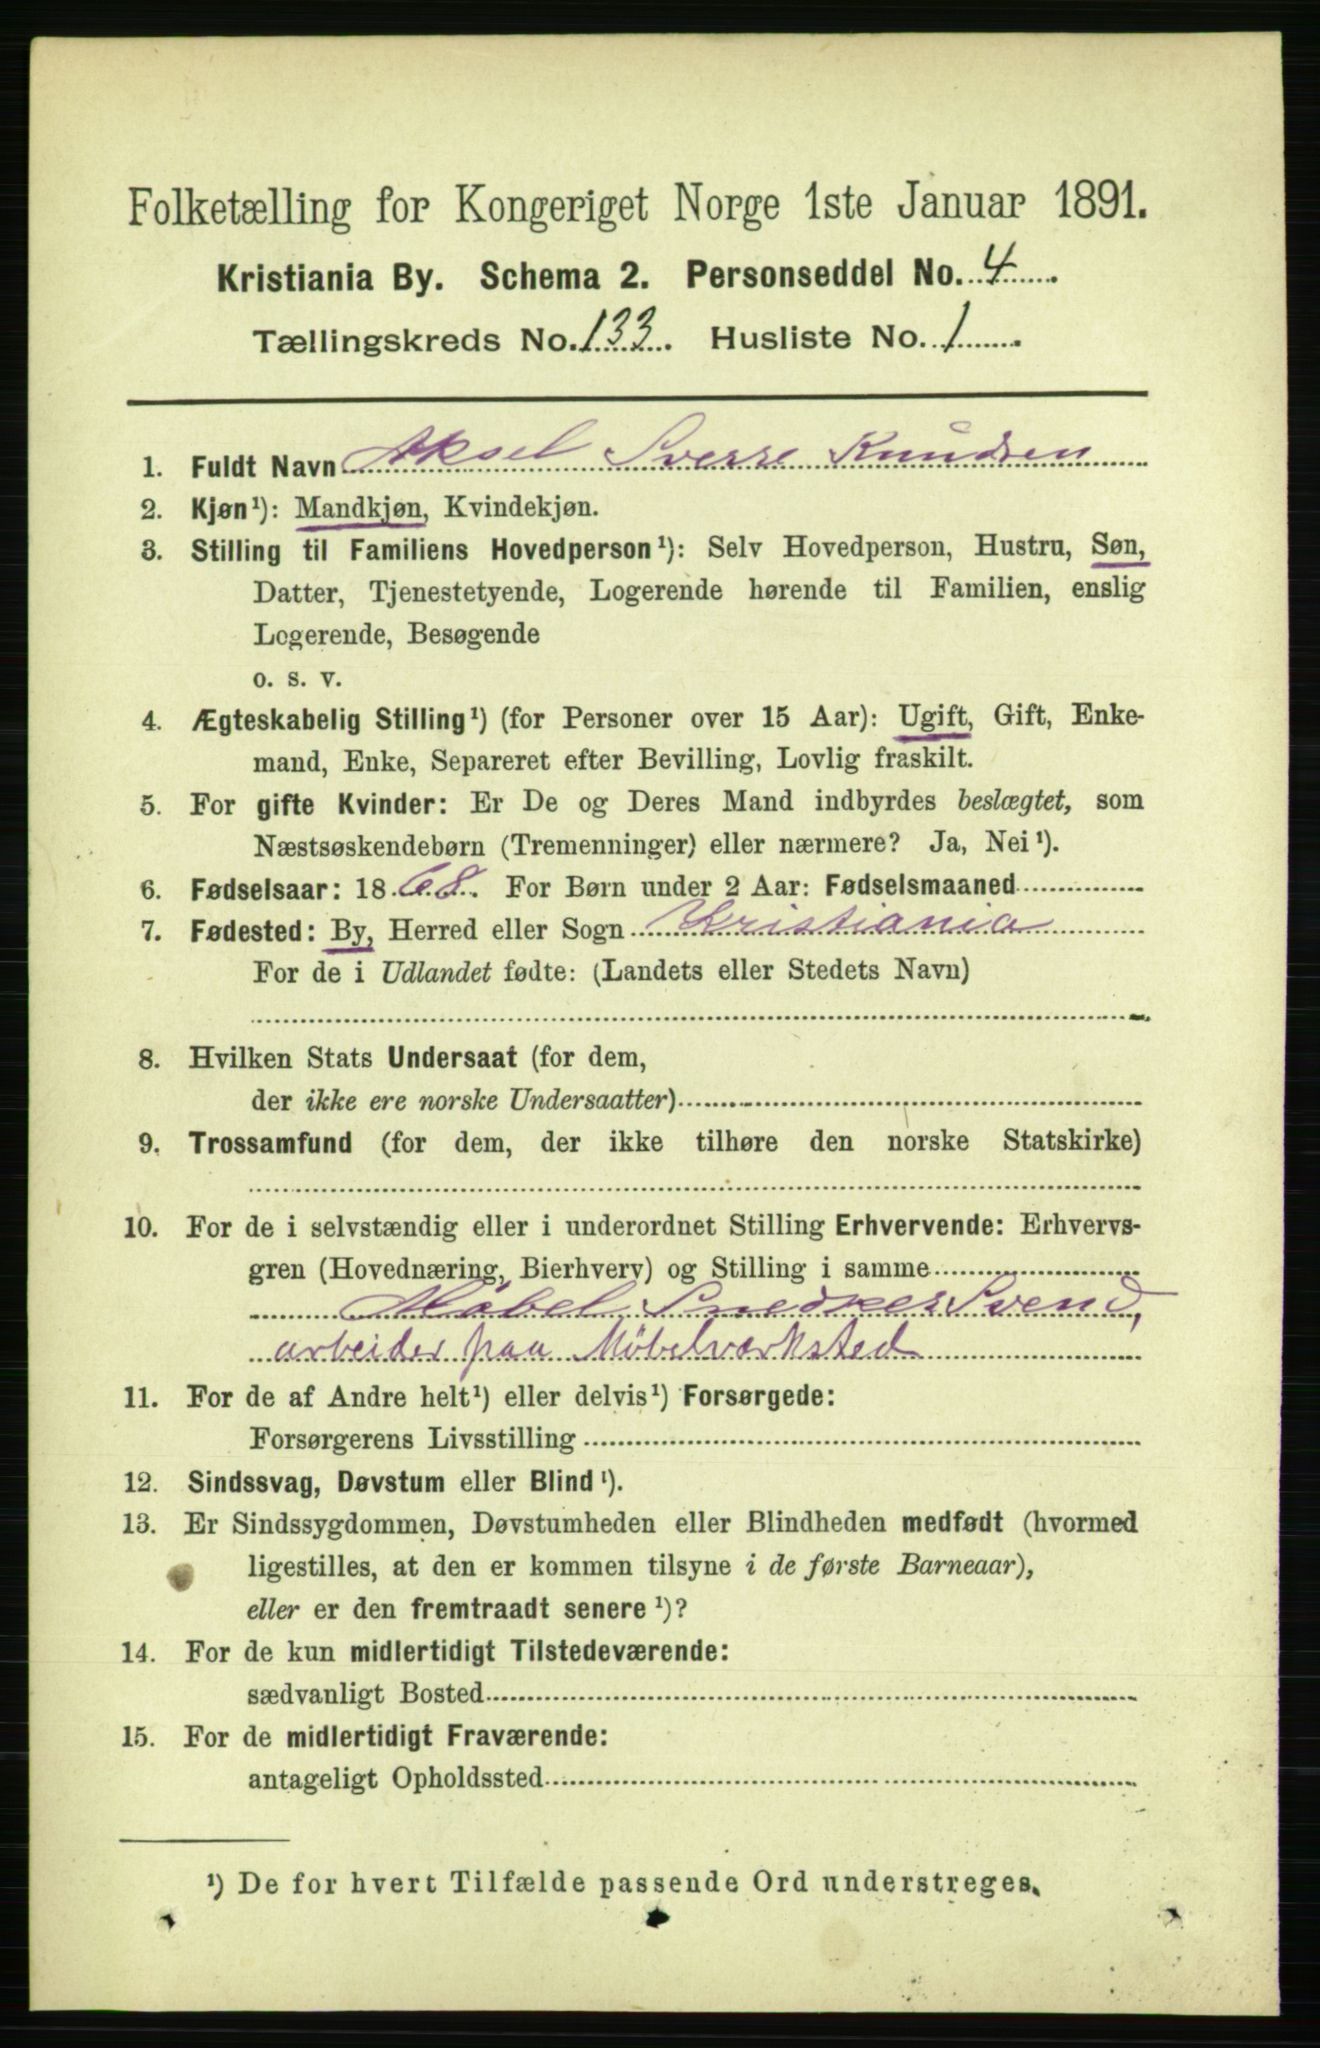 Folketælling for Kongeriget Norge 1ste Januar 1891.
Kristiania By. Schema 2. Personseddel No. 4
Tællingskreds No. 133. Husliste No. 1
1. Fuldt Navn Aksel Sverre Knudsen
2. Kjøn¹): Mandkjøn, Kvindekjøn.
3. Stilling til Familiens Hovedperson¹): Selv Hovedperson, Hustru, Søn,
Datter, Tjenestetyende, Logerende hørende til Familien, enslig
Logerende, Besøgende
o. s. v.
4. Ægteskabelig Stilling¹) (for Personer over 15 Aar): Ugift, Gift, Enke-
mand, Enke, Separeret efter Bevilling, Lovlig fraskilt.
5. For gifte Kvinder: Er De og Deres Mand indbyrdes beslægtet, som
Næstsøskendebørn (Tremenninger) eller nærmere? Ja, Nei¹).
6. Fødselsaar: 1868. For Børn under 2 Aar: Fødselsmaaned
7. Fødested: By, Herred eller Sogn Kristiania
For de i Udlandet fødte: (Landets eller Stedets Navn)
8. Hvilken Stats Undersaat (for dem,
der ikke ere norske Undersaatter)
9. Trossamfund (for dem, der ikke tilhøre den norske Statskirke)
10. For de i selvstændig eller i underordnet Stilling Erhvervende: Erhvervs-
gren (Hovednæring, Bierhverv) og Stilling i samme
Møbel Snedker Svend,
arbeider paa Møbelværksted
11. For de af Andre helt¹) eller delvis¹) Forsørgede:
Forsørgerens Livsstilling
12. Sindssvag, Døvstum eller Blind¹).
13. Er Sindssygdommen, Døvstumheden eller Blindheden medfødt (hvormed
ligestilles, at den er kommen tilsyne i de første Barneaar),
eller er den fremtraadt senere¹)?
14. For de kun midlertidigt Tilstedeværende:
sædvanligt Bosted
15. For de midlertidigt Fraværende:
antageligt Opholdssted
¹) De for hvert Tilfælde passende Ord understreges.